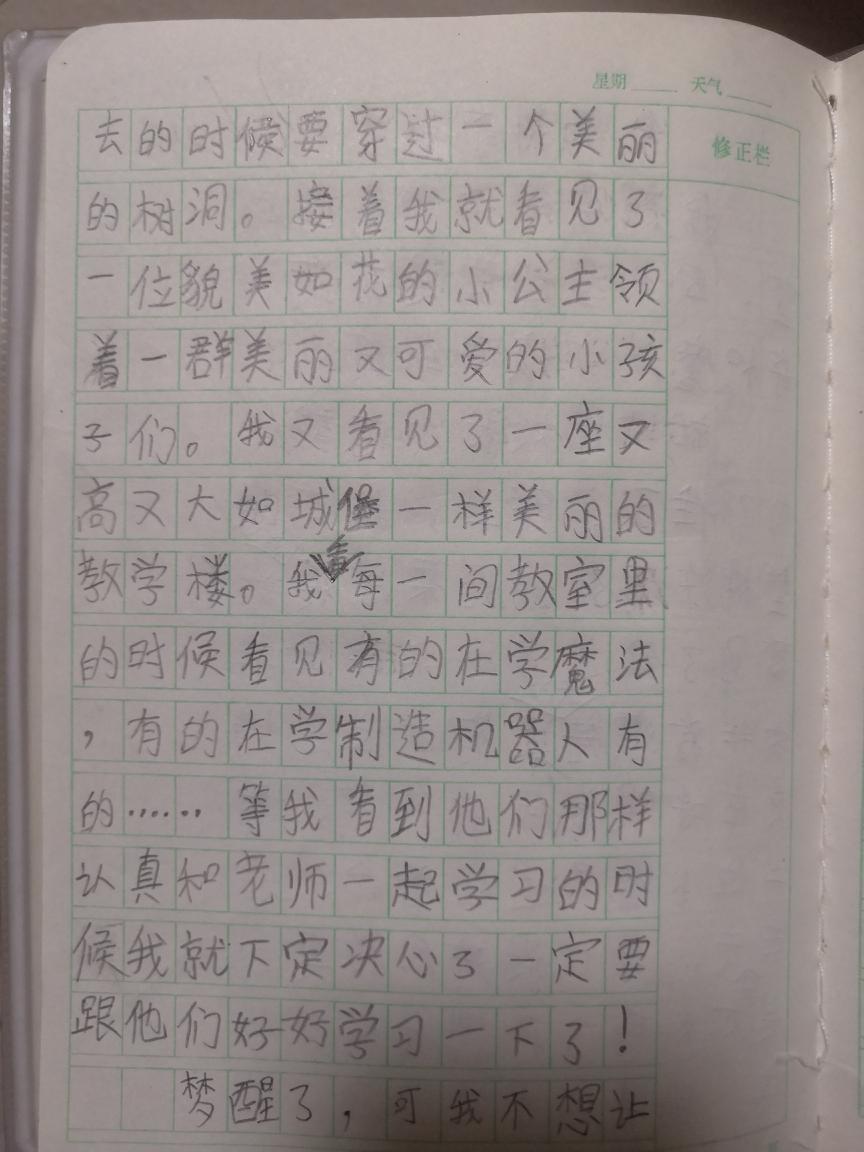 星期 天气
修正栏
去的时候要穿过一个美丽
的树洞。接着我就看见了
一位貌美如花的小公主领
着一群美丽又可爱的小孩
子们。我又看见了一座又
高又大如城堡一样美丽的
教学楼。我看每一间教室里
的时候看见有的在学魔法
，有的在学制造机器人有
的……等我看到他们那样
认真和老师一起学习的时
候我就下定决心了一定要
跟他们好好学习一下了！
梦醒了，可我不想让